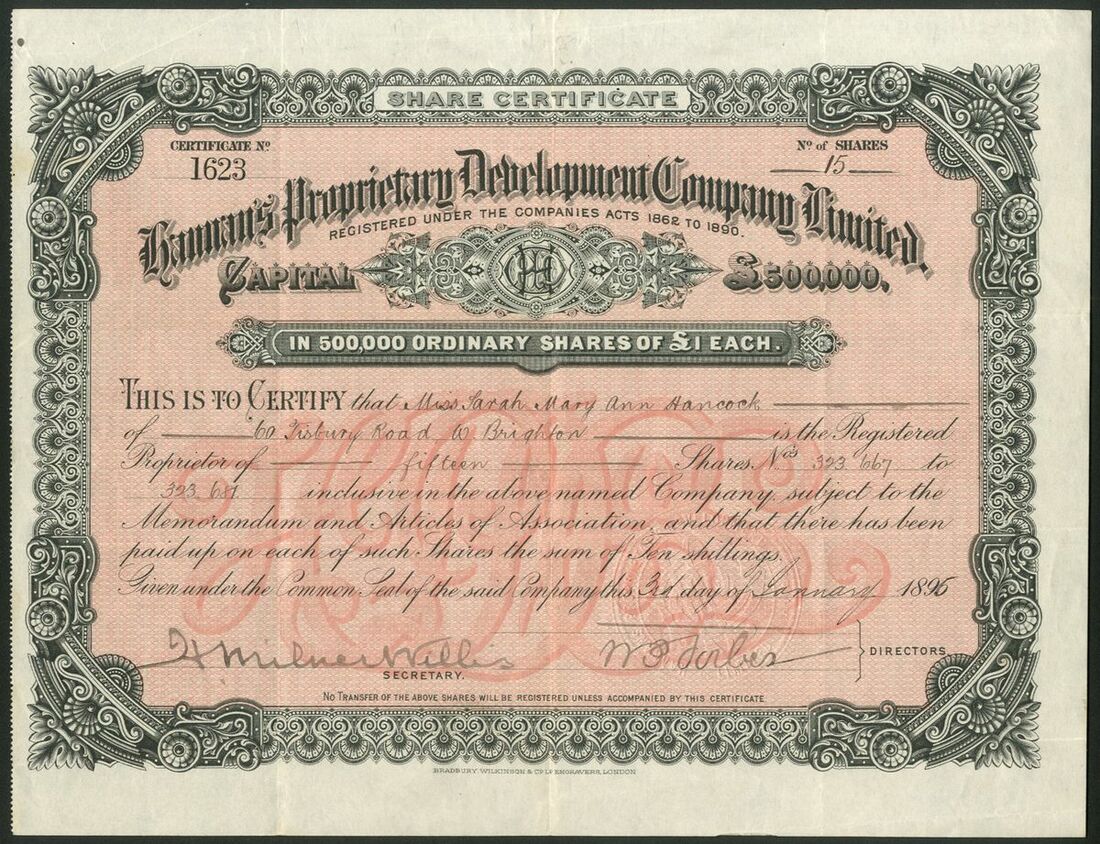 SHARE CERTIFICATE
CERTIFICATE Nº
1623
Nº of SHARES
15
Hannan's Proprietary Development Company Limited.
REGISTERED UNDER THE COMPANIES ACTS 1862 TO 1890.
CAPITAL £500,000.
IN 500,000 ORDINARY SHARES OF £1 EACH.
THIS IS TO CERTIFY that Miss Sarah Mary Ann Hancock
of 60 Tisbury Road W Brighton is the Registered
Proprietor of fifteen Shares Nos 323 667 to
323 681 inclusive in the above named Company, subject to the
Memorandum and Articles of Association, and that there has been
paid up on each of such Shares the sum of Ten shillings.
Given under the Common Seal of the said Company this 3rd day of January 1896
H Milner Willis
W F Forbes
DIRECTORS
SECRETARY.
NO TRANSFER OF THE ABOVE SHARES WILL BE REGISTERED UNLESS ACCOMPANIED BY THIS CERTIFICATE.
BRADBURY, WILKINSON & Cº Lº ENGRAVERS, LONDON